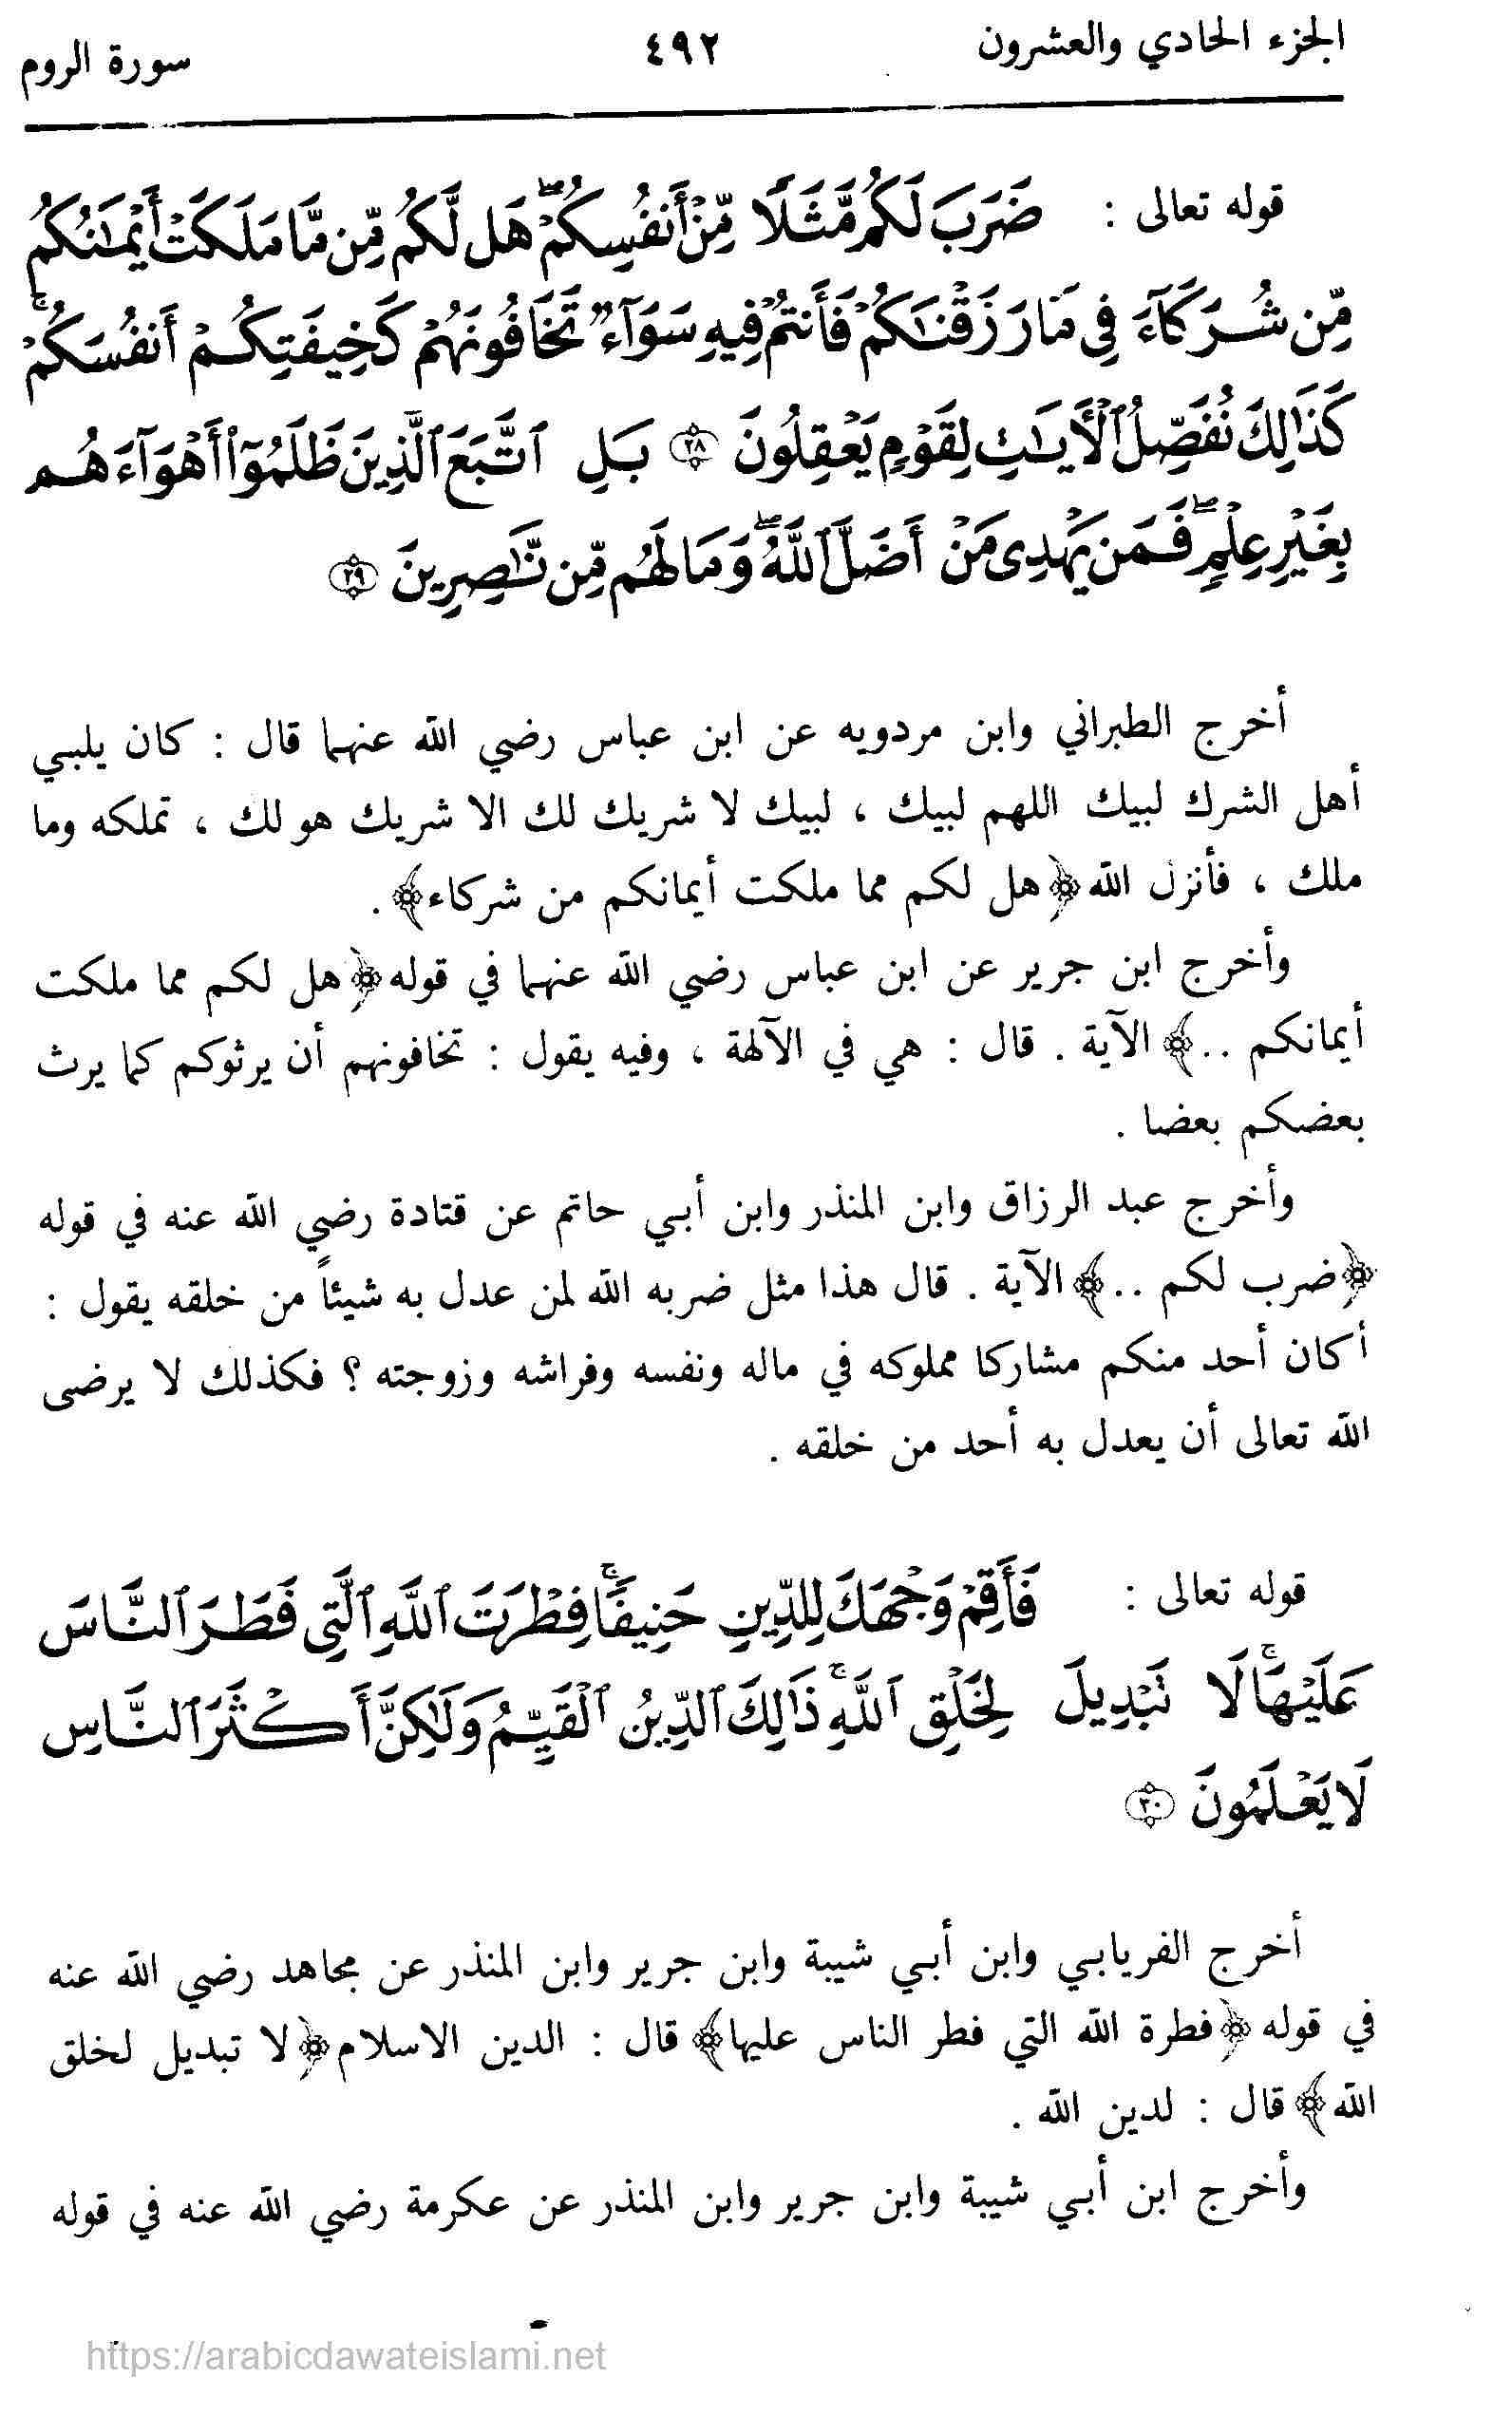 الجزء الحادي والعشرون ٤٩٢ سورة الروم
قوله تعالى : ضَرَبَ لَكُم مَّثَلًا مِّنْ أَنفُسِكُمْ ۖ هَل لَّكُم مِّن مَّا مَلَكَتْ أَيْمَٰنُكُم
مِّن شُرَكَآءَ فِى مَا رَزَقْنَٰكُمْ فَأَنتُمْ فِيهِ سَوَآءٌ تَخَافُونَهُمْ كَخِيفَتِكُمْ أَنفُسَكُمْ ۚ
كَذَٰلِكَ نُفَصِّلُ ٱلْأَيَٰتِ لِقَوْمٍ يَعْقِلُونَ ٢٨ بَلِ ٱتَّبَعَ ٱلَّذِينَ ظَلَمُوٓا۟ أَهْوَآءَهُم
بِغَيْرِ عِلْمٍ ۖ فَمَن يَهْدِى مَنْ أَضَلَّ ٱللَّهُ ۖ وَمَا لَهُم مِّن نَّٰصِرِينَ ٢٩
أخرج الطبراني وابن مردويه عن ابن عباس رضي الله عنهما قال : كان يلبي
أهل الشرك لبيك اللهم لبيك ، لبيك لا شريك لك الا شريك هو لك ، تملكه وما
ملك ، فأنزل الله ﴿هل لكم مما ملكت أيمانكم من شركاء﴾ .
وأخرج ابن جرير عن ابن عباس رضي الله عنهما في قوله ﴿هل لكم مما ملكت
أيمانكم ..﴾ الآية . قال : هي في الآلهة ، وفيه يقول : تخافونهم أن يرثوكم كما يرث
بعضكم بعضا .
وأخرج عبد الرزاق وابن المنذر وابن أبي حاتم عن قتادة رضي الله عنه في قوله
﴿ضرب لكم ..﴾ الآية . قال هذا مثل ضربه الله لمن عدل به شيئاً من خلقه يقول :
أكان أحد منكم مشاركا مملوكه في ماله ونفسه وفراشه وزوجته ؟ فكذلك لا يرضى
الله تعالى أن يعدل به أحد من خلقه .
قوله تعالى : فَأَقِمْ وَجْهَكَ لِلدِّينِ حَنِيفًا ۚ فِطْرَتَ ٱللَّهِ ٱلَّتِى فَطَرَ ٱلنَّاسَ
عَلَيْهَا ۚ لَا تَبْدِيلَ لِخَلْقِ ٱللَّهِ ۚ ذَٰلِكَ ٱلدِّينُ ٱلْقَيِّمُ وَلَٰكِنَّ أَكْثَرَ ٱلنَّاسِ
لَا يَعْلَمُونَ ٣٠
أخرج الفريابي وابن أبي شيبة وابن جرير وابن المنذر عن مجاهد رضي الله عنه
في قوله ﴿فطرة الله التي فطر الناس عليها﴾ قال : الدين الاسلام ﴿لا تبديل لخلق
الله﴾ قال : لدين الله .
وأخرج ابن أبي شيبة وابن جرير وابن المنذر عن عكرمة رضي الله عنه في قوله
https://arabicdawateislami.net